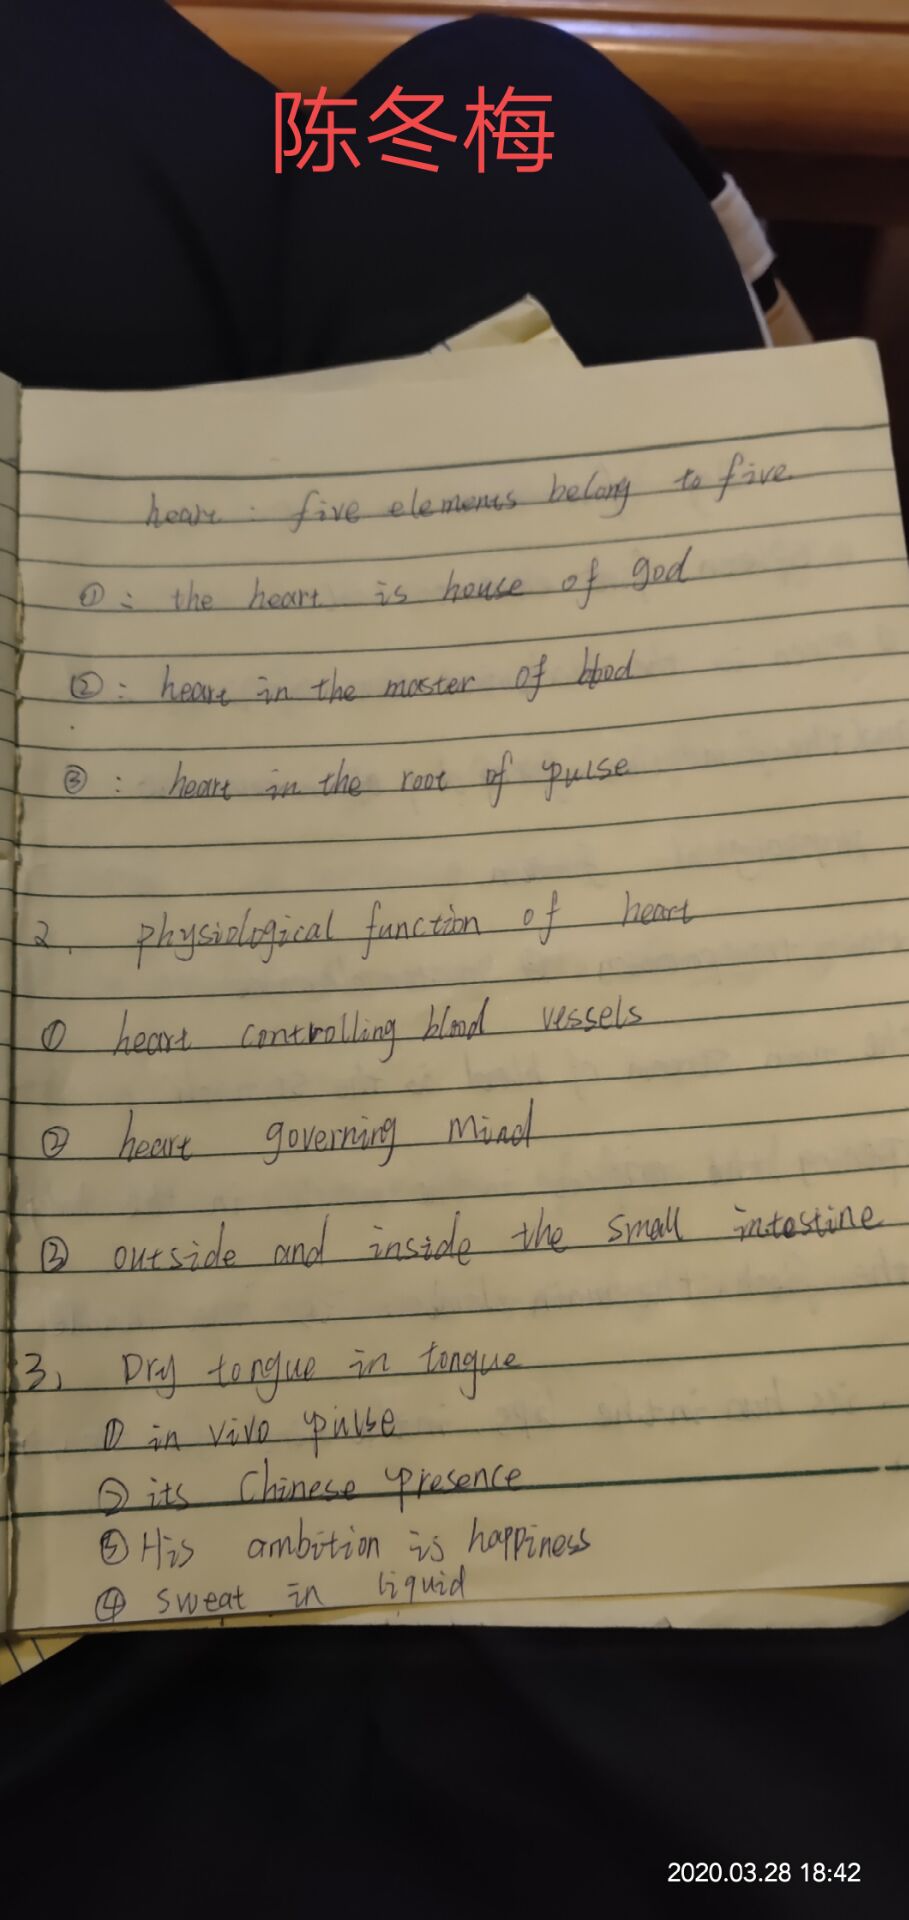 陈冬梅
heart : five elements belong to five
① : the heart is house of god
② : heart in the master of blood
③ : heart in the root of pulse
2. physiological function of heart
① heart controlling blood vessels
② heart governing mind
③ outside and inside the small intestine
3, Dry tongue in tongue
① in vivo pulse
② its Chinese presence
③ His ambition is happiness
④ sweat in liquid
2020.03.28 18:42